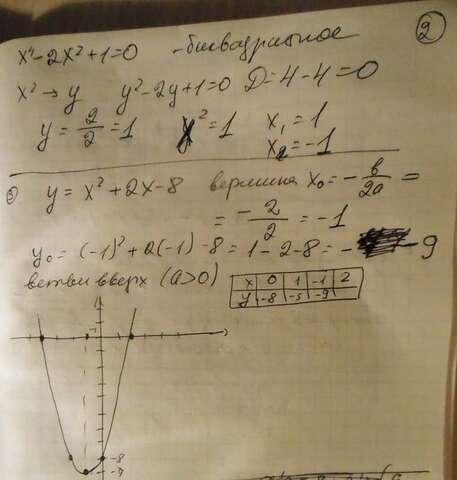 x⁴-2x²+1=0 -биквадратное ②
x² → y y²-2y+1=0 D=4-4=0
y = 2/2 = 1 x²=1 x₁ = 1
x₂ = -1
③ y = x²+2x-8 вершина x₀ = -в/2a =
= -2/2 = -1
y₀ = (-1)²+2(-1)-8 = 1-2-8 = -9
ветви вверх (a>0)
x 0 1 -1 2
y -8 -5 -9
-1
-8
-9